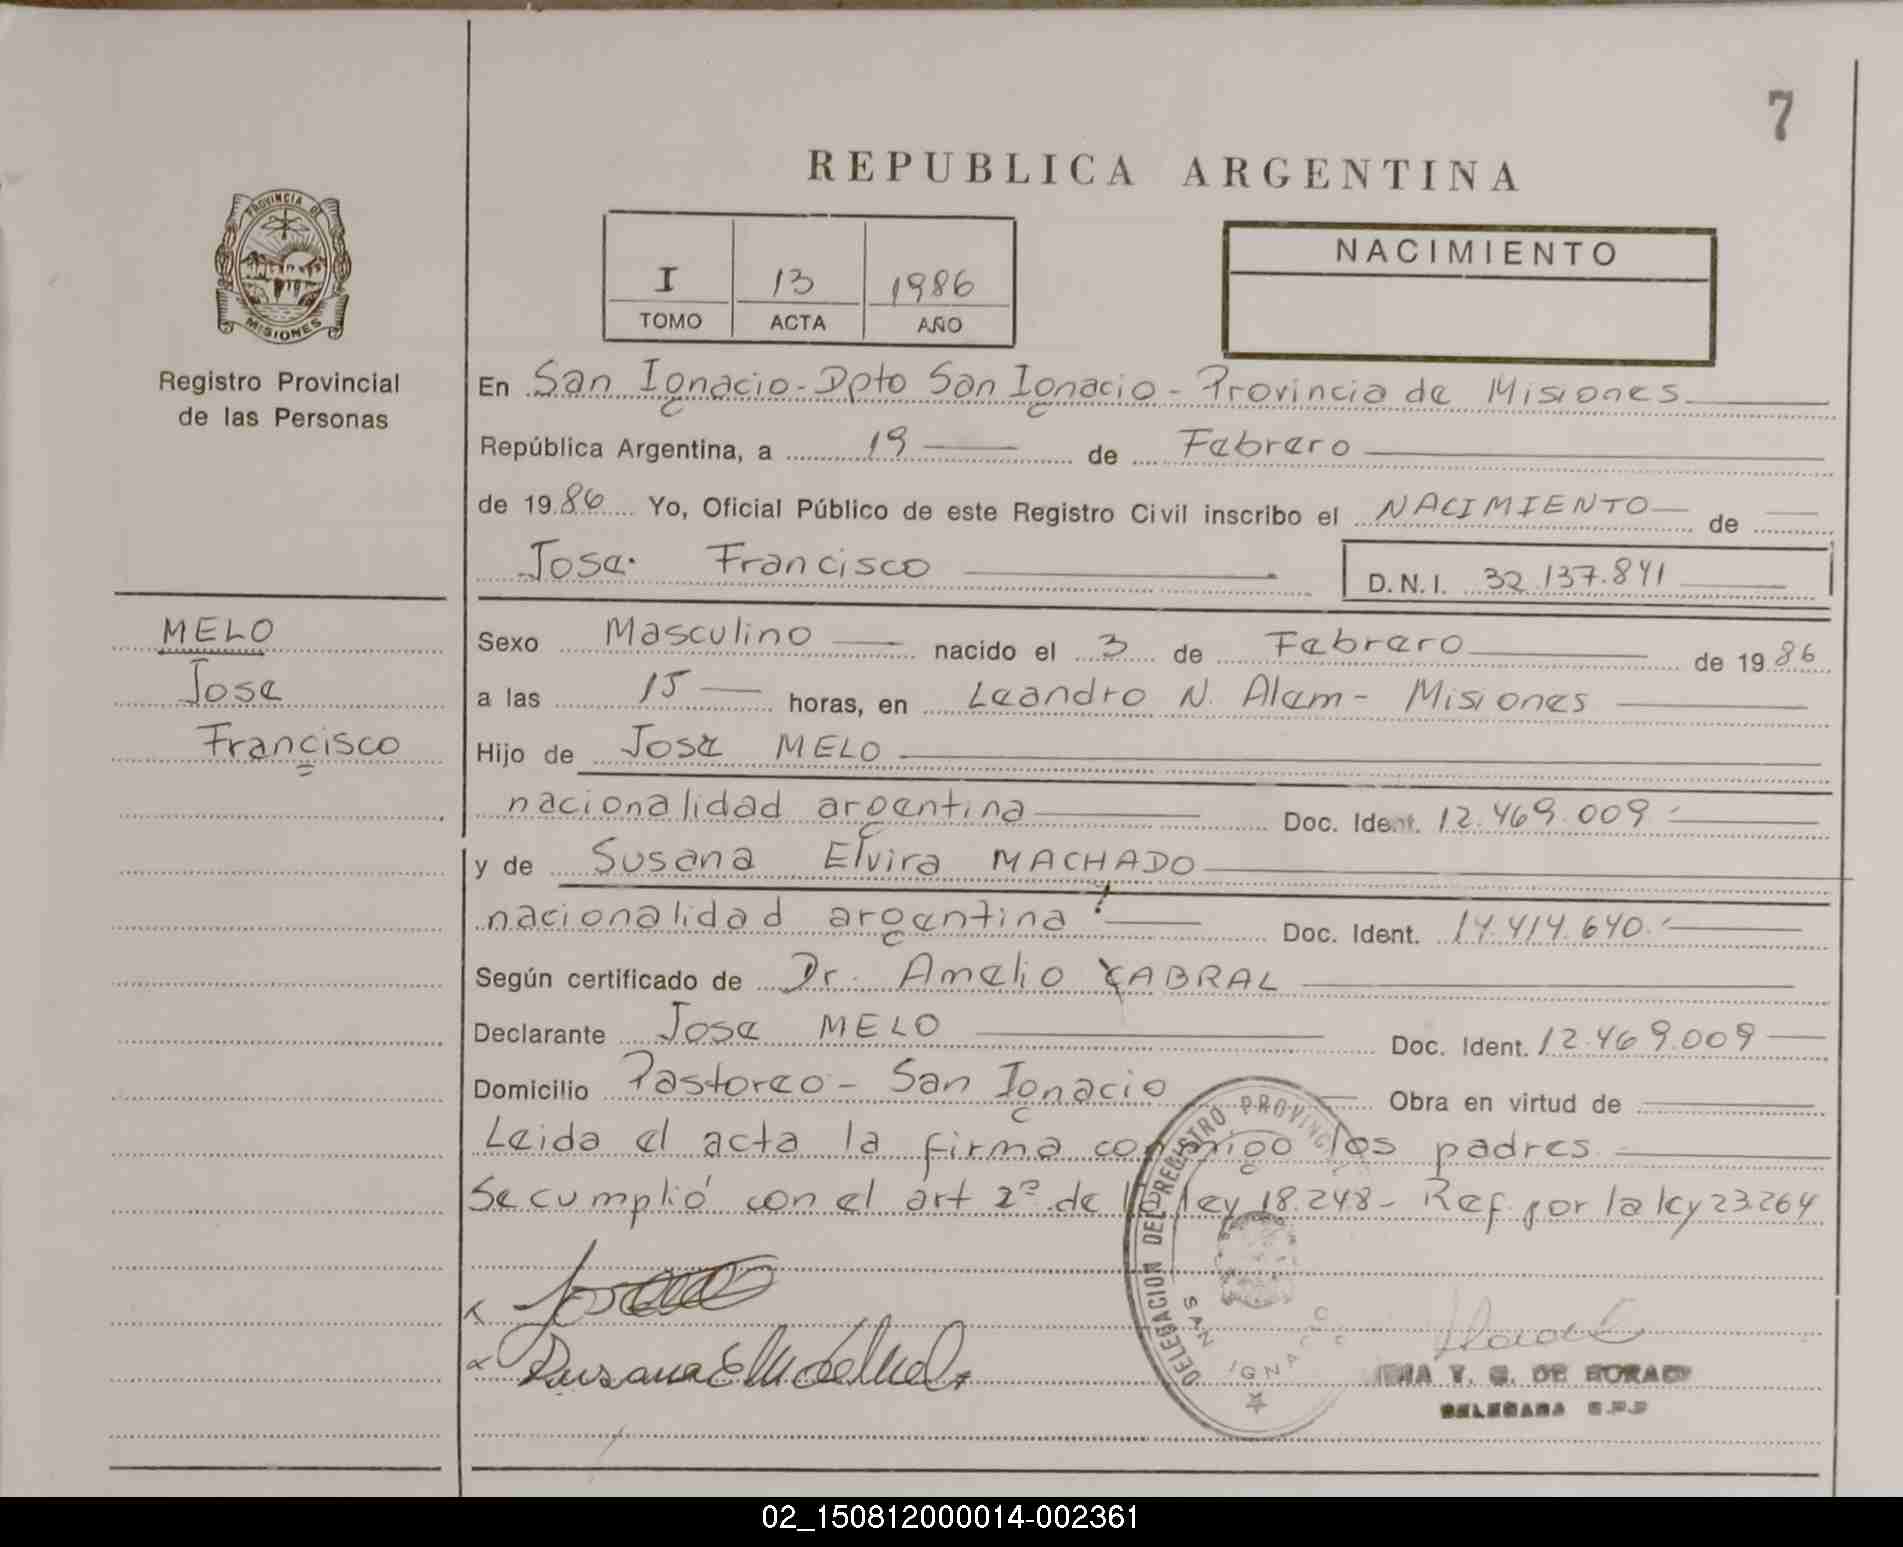 7
REPUBLICA ARGENTINA
PROVINCIA DE
MISIONES
Registro Provincial
de las Personas
I 13 1986
TOMO ACTA AÑO
NACIMIENTO
En San Ignacio - Dpto San Ignacio - Provincia de Misiones
República Argentina, a 19 de Febrero
de 1986 Yo, Oficial Público de este Registro Civil inscribo el NACIMIENTO de
Jose Francisco D.N.I. 32.137.841
MELO
Jose
Francisco
Sexo Masculino nacido el 3 de Febrero de 1986
a las 15 horas, en Leandro N. Alem - Misiones
Hijo de Jose MELO
nacionalidad argentina Doc. Ident. 12.469.009
y de Susana Elvira MACHADO
nacionalidad argentina Doc. Ident. 14.414.640
Según certificado de Dr. Amelio CABRAL
Declarante Jose MELO Doc. Ident. 12.469.009
Domicilio Pastoreo - San Ignacio Obra en virtud de
Leida el acta la firma conmigo los padres
Se cumplió con el art 2º de la ley 18.248 - Ref. por la ley 23.264
DELEGACION DEL REGISTRO PROVINCIAL
SAN IGNACIO
DE
DELEGADA
02_150812000014-002361